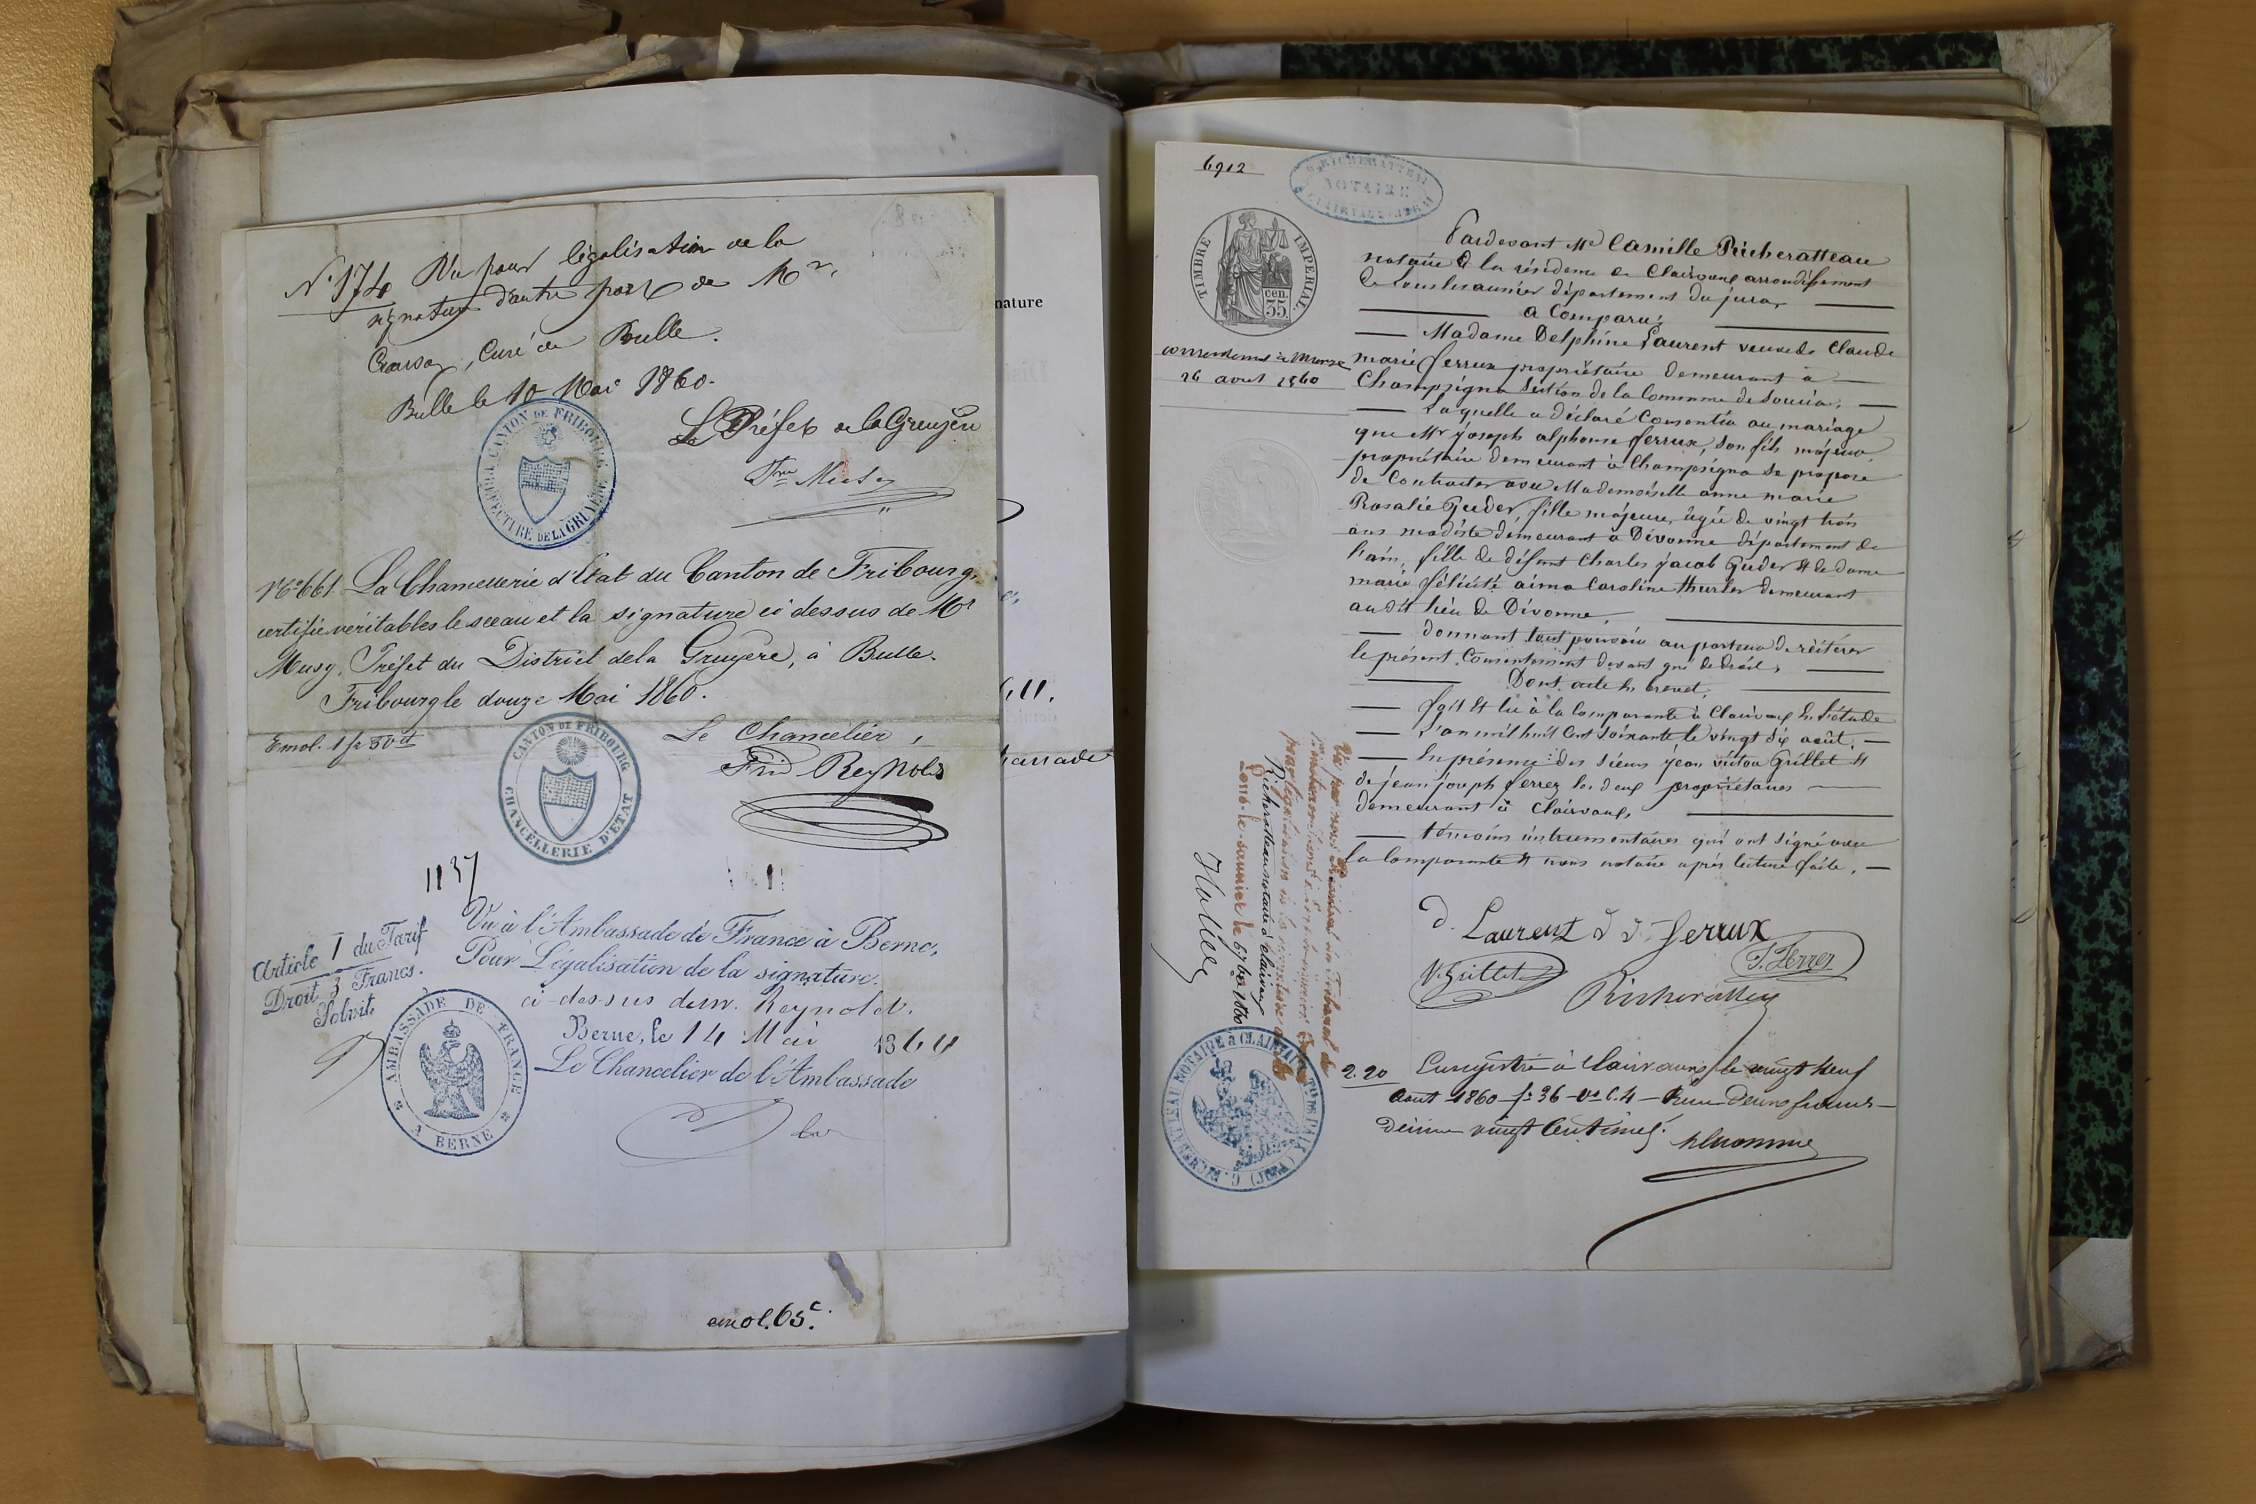 N° 174 Vu pour légalisation de la
signature d'autre part de Mr.
Curé de Bulle.
Bulle le 10 Mai 1860.
Le Préfet de la Gruyère
CANTON DE FRIBOURG
PRÉFECTURE DE LA GRUYÈRE
N° 661 La Chancellerie d'Etat du Canton de Fribourg,
certifie véritables le sceau et la signature ci dessus de Mr
Musy, Préfet du District de la Gruyère, à Bulle.
Fribourg le douze Mai 1860.
Emol. 1 fr 50 ct
Le Chancelier,
CANTON DE FRIBOURG
CHANCELLERIE D'ETAT
1137
Vu à l'Ambassade de France à Berne,
Pour Légalisation de la signature
ci-dessus de m. Reynold.
Berne, le 14 Mai 1860
Le Chancelier de l'Ambassade
Article 1 du Tarif
Droit 3 Francs.
Solvit
AMBASSADE DE FRANCE
A BERNE
emol. 65 c.
nature
6912
NOTAIRE
TIMBRE IMPERIAL
35 cen.
consentement à Mariage
26 aout 1860
Pardevant Me Camille Richeratteau
notaire à la résidence de Clairvaux arrondissement
de Lons le saunier département du jura,
a Comparu:
Madame Delphine Laurent veuve de Claude
marie ferrux propriétaire demeurant à
Champsigna section de la Commune de Soucia,
Laquelle a déclaré Consentir au mariage
que Mr joseph alphonse ferrux, son fils majeur,
propriétaire demeurant à Champsigna se propose
de Contracter avec Mademoiselle anne marie
Rosalie Guder, fille majeure, âgée de vingt trois
ans modiste demeurant à Divonne département de
l'ain, fille de défunt Charles jacob Guder et de dame
marie félicité aima Caroline thurler demeurant
au dit lieu de Divonne,
donnant tout pouvoir au porteur de réitérer
le présent Consentement devant qui de droit,
Dont acte en brevet,
fait et lu à la Comparante à Clairvaux en l'étude
L'an mil huit Cent soixante le vingt six août,
En présence des sieurs jean victor Grillet et
de jean joseph ferrez les deux propriétaires
demeurant à Clairvaux,
témoins instrumentaires qui ont signé avec
la Comparante et nous notaire après lecture faite,
d. Laurent V ve ferrux
V. Grillet
J. Ferrez
Richeratteau
2.20 Enregistré à Clairvaux le vingt neuf
Aout 1860 fo 36 Vo C. 4 Reçu Deux francs
Décime vingt Centimes.
Vu par nous Président du Tribunal de
pour légalisation de la signature de Me
Richeratteau notaire à Clairvaux
Lons-le-saunier le 6 7bre 1860